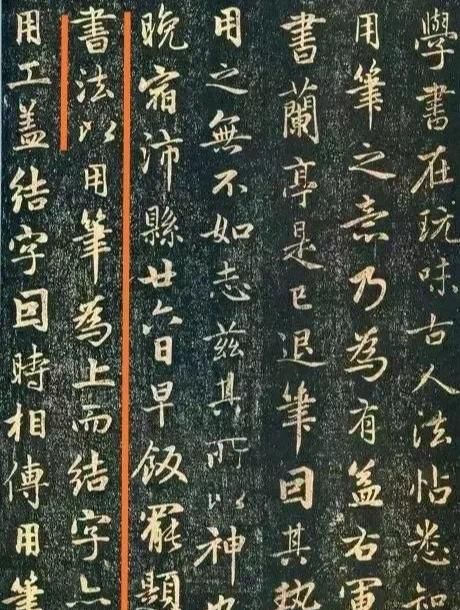 學書在玩味古人法帖悉知
用筆之意乃為有益右軍
書蘭亭是已退筆因其勢
用之無不如志茲其所以神
晚宿沛縣廿六日早飯罷題
書法以用筆為上而結字亦
用工蓋結字因時相傳用筆